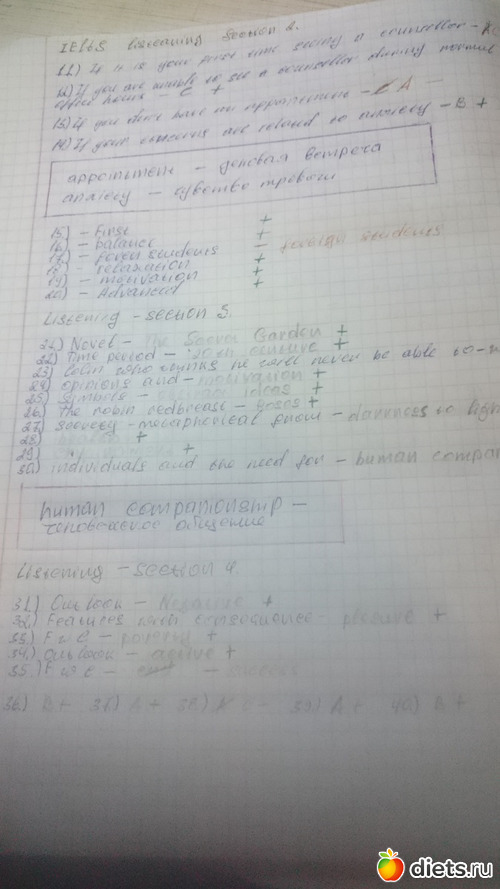 IELTS Listening Section 2.
11) If it is your first time seeing a counsellor -
12) If you are unable to see a counsellor during normal
office hours - C +
13) If you don't have an appointment - A -
14) If your concerns are related to anxiety - B +
appointment - деловая встреча
anxiety - чувство тревоги
15) - First +
16) - balance +
17) - foren students - foreign students
18) - relaxation +
19) - motivation +
20) - Advanced +
Listening - section 3.
21) Novel - The Secret Garden +
22) Time period - 20th centure +
23) Colin who thinks he will never be able to -
24) opinions and - motivation +
25) Symbols - ideas +
26) The robin redbreast - roses +
27) - metaphorical from - darkness to light
28) +
29) +
30) individuals and the need for - human compan
human companionship -
человеческое общение
Listening - section 4.
31) Outlook - Negative +
32) Features near consequence - pleasure +
33) F & C - poverty +
34) Outlook - active +
35) F & C - - success
36) B + 37) A + 38) C - 39) A + 40) B +
diets.ru